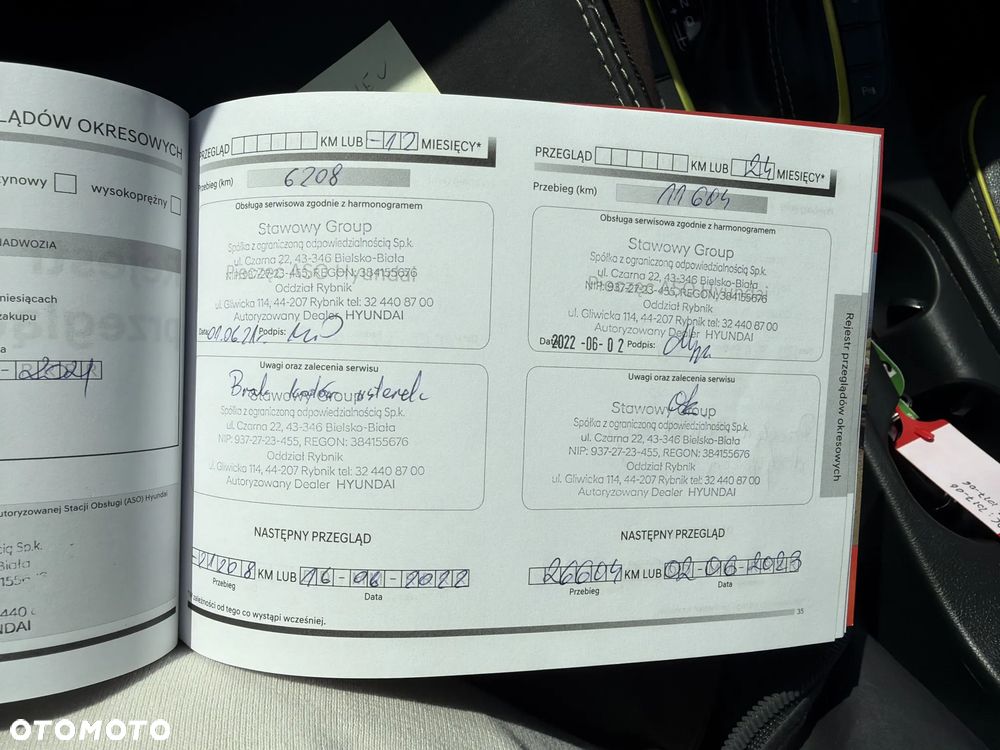 GLĄDÓW OKRESOWYCH
zynowy
wysokoprężny
NADWOZIA
miesiącach
zakupu
2021
autoryzowanej Stacji Obsługi (ASO) Hyundai
PRZEGLĄD KM LUB -12 MIESIĘCY*
Przebieg (km) 6208
Obsługa serwisowa zgodnie z harmonogramem
Stawowy Group
Spółka z ograniczoną odpowiedzialnością Sp.k.
ul. Czarna 22, 43-346 Bielsko-Biała
NIP: 937-27-23-455, REGON: 384155676
Oddział Rybnik
ul. Gliwicka 114, 44-207 Rybnik tel: 32 440 87 00
Autoryzowany Dealer HYUNDAI
Data: Podpis:
Uwagi oraz zalecenia serwisu
Brak usterek
Stawowy Group
Spółka z ograniczoną odpowiedzialnością Sp.k.
ul. Czarna 22, 43-346 Bielsko-Biała
NIP: 937-27-23-455, REGON: 384155676
Oddział Rybnik
ul. Gliwicka 114, 44-207 Rybnik tel: 32 440 87 00
Autoryzowany Dealer HYUNDAI
NASTĘPNY PRZEGLĄD
21208 KM LUB 16-06-2022
Przebieg Data
zależności od tego co wystąpi wcześniej.
PRZEGLĄD KM LUB 24 MIESIĘCY*
Przebieg (km) 11604
Obsługa serwisowa zgodnie z harmonogramem
Stawowy Group
Spółka z ograniczoną odpowiedzialnością Sp.k.
ul. Czarna 22, 43-346 Bielsko-Biała
NIP: 937-27-23-455, REGON: 384155676
Oddział Rybnik
ul. Gliwicka 114, 44-207 Rybnik tel: 32 440 87 00
Autoryzowany Dealer HYUNDAI
Data 2022-06-02 Podpis:
Uwagi oraz zalecenia serwisu
Ok
Stawowy Group
Spółka z ograniczoną odpowiedzialnością Sp.k.
ul. Czarna 22, 43-346 Bielsko-Biała
NIP: 937-27-23-455, REGON: 384155676
Oddział Rybnik
ul. Gliwicka 114, 44-207 Rybnik tel: 32 440 87 00
Autoryzowany Dealer HYUNDAI
NASTĘPNY PRZEGLĄD
26604 KM LUB 02-06-2023
Przebieg Data
35
Rejestr przeglądów okresowych
OTOMOTO